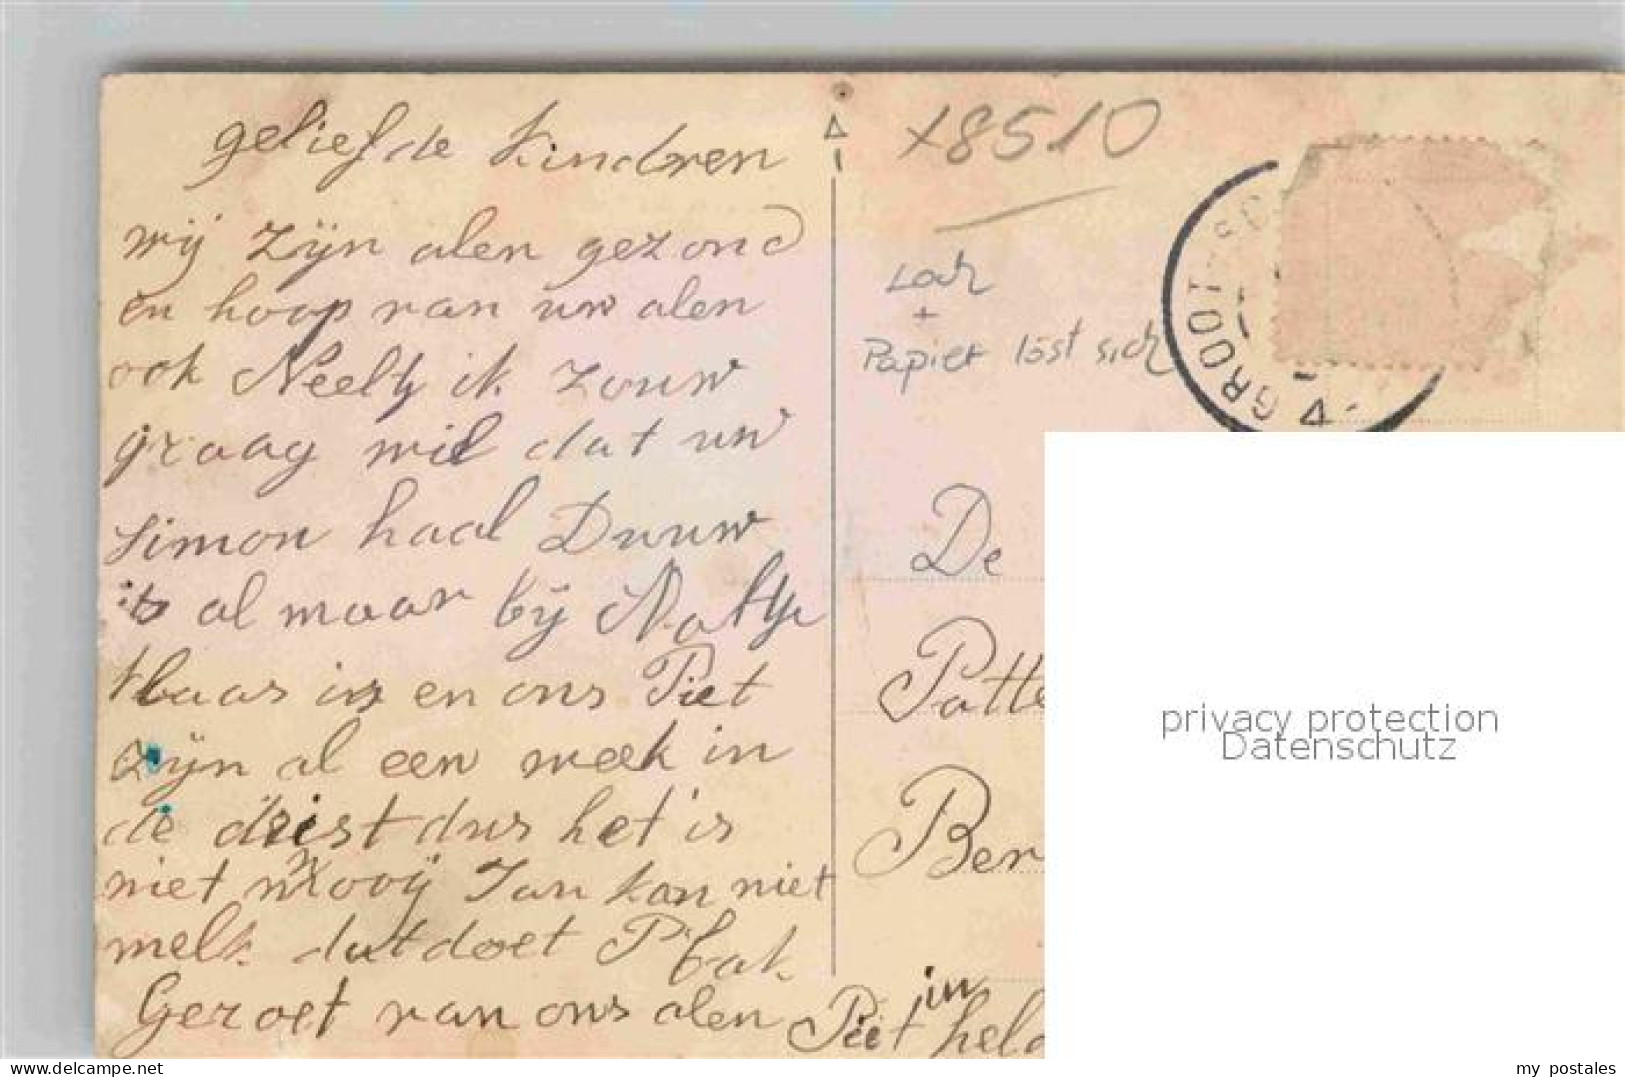 geliefde kindren
wij zijn alen gezond
en hoop van uw alen
ook Neeltj ik zouw
graag wil dat uw
Simon haal Duuw
is al maar bij
baas is en ons Piet
zijn al een week in
de dist dus het is
niet mooij Jan kan niet
melk dat doet P bak
Gezoet van ons alen Piet in held
x8510
Loch
+
Papier löst sich
GROOT-SC
De
Patte
Ber
privacy protection
Datenschutz
delcampe.net
my_postales